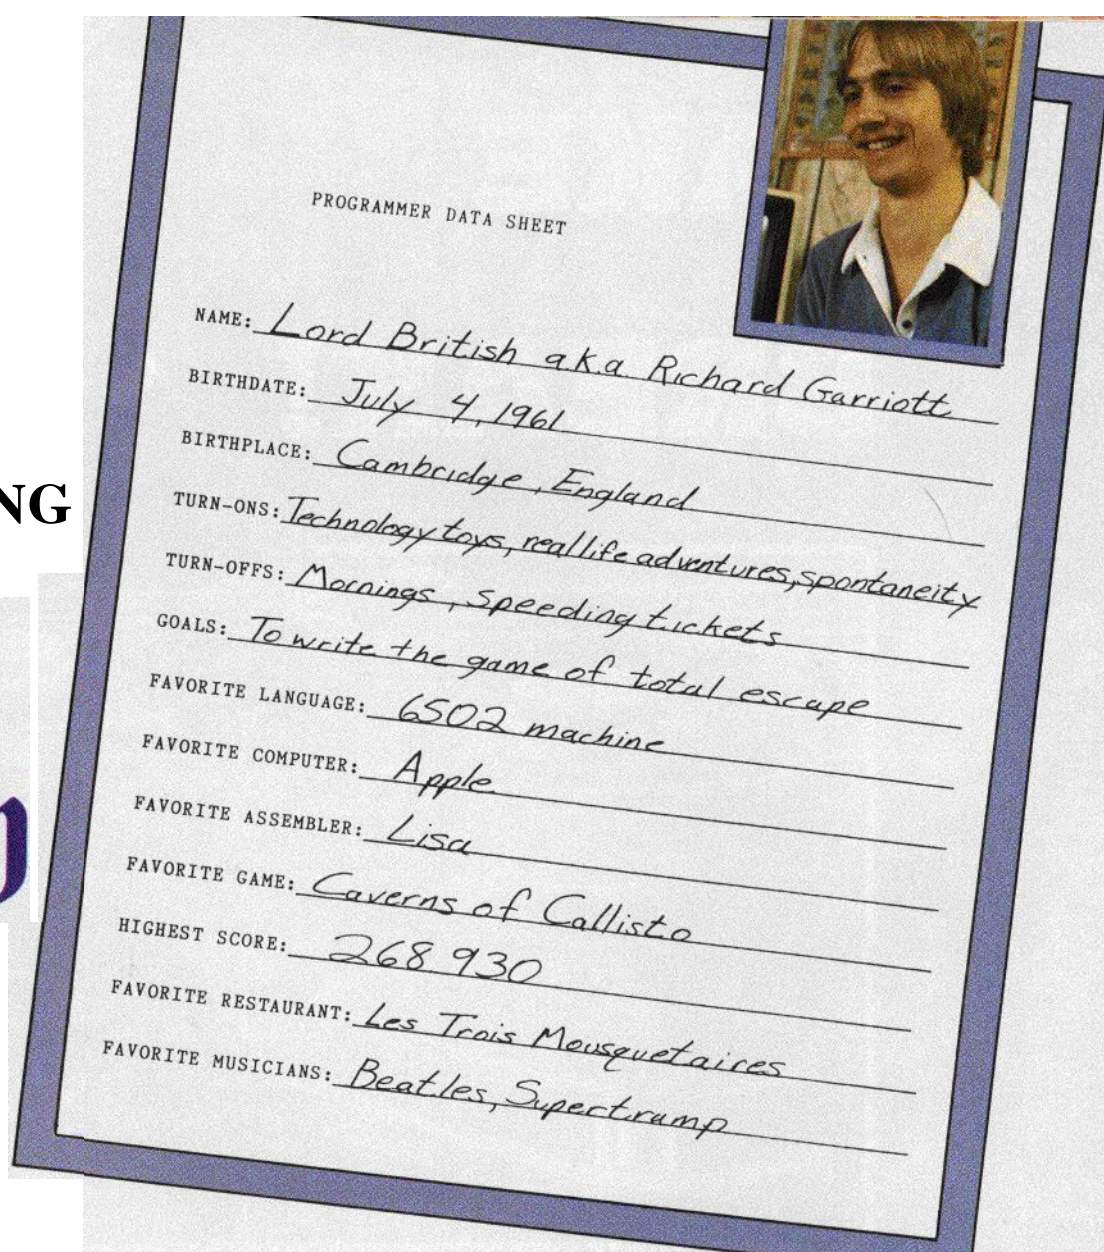 PROGRAMMER DATA SHEET
NAME: Lord British a.k.a Richard Garriott
BIRTHDATE: July 4, 1961
BIRTHPLACE: Cambridge, England
NG
TURN-ONS: Technology toys, real life adventures, spontaneity
TURN-OFFS: Mornings, speeding tickets
GOALS: To write the game of total escape
FAVORITE LANGUAGE: 6502 machine
FAVORITE COMPUTER: Apple
FAVORITE ASSEMBLER: Lisa
FAVORITE GAME: Caverns of Callisto
HIGHEST SCORE: 268 930
FAVORITE RESTAURANT: Les Trois Mousquetaires
FAVORITE MUSICIANS: Beatles, Supertramp